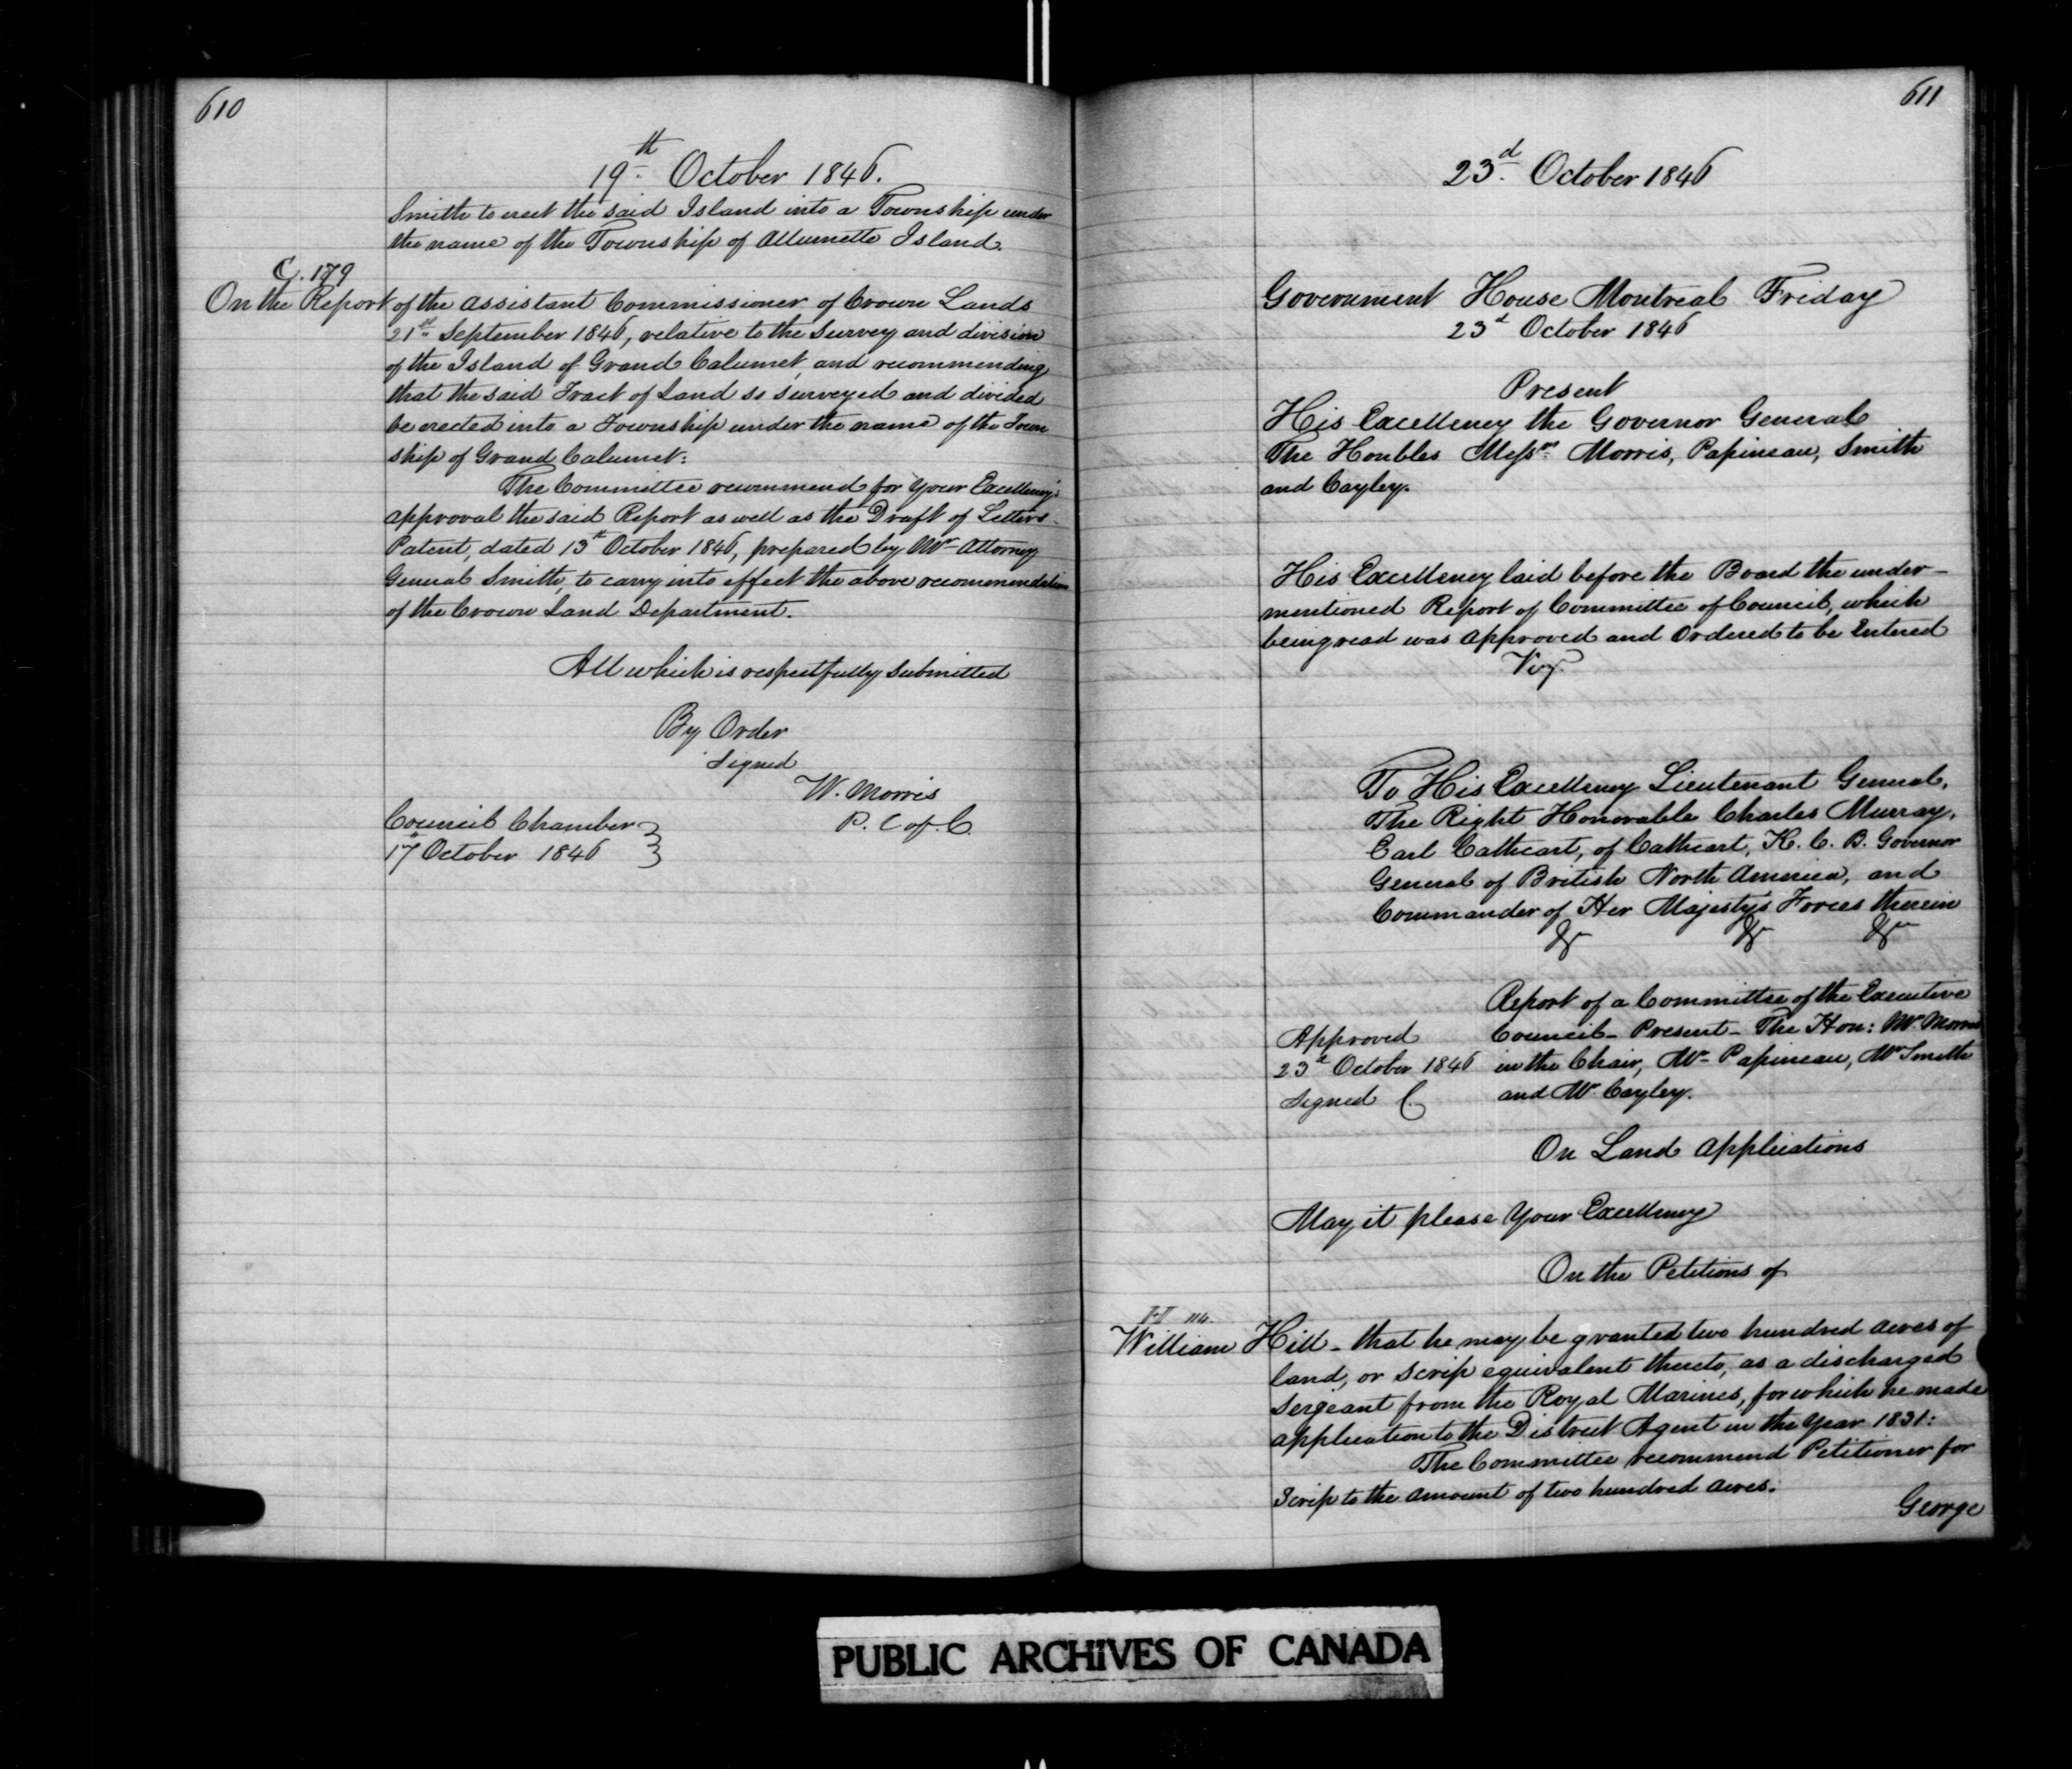 610
19th October 1846.
Smith to erect the said Island into a Township under
the name of the Township of Allumette Island.
C. 179
On the Report of the Assistant Commissioner of Crown Lands
21st September 1846, relative to the Survey and division
of the Island of Grand Calumet, and recommending
that the said Tract of Land so surveyed and divided
be erected into a Township under the name of the Town
ship of Grand Calumet:
The Committee recommend for Your Excellency's
approval the said Report as well as the Draft of Letters
Patent, dated 13th October 1846, prepared by Mr Attorney
General Smith, to carry into effect the above recommendation
of the Crown Land Department.
All which is respectfully submitted
By Order
Signed
W. Morris
P. C of C.
Council Chamber
17th October 1846
611
23d October 1846
Government House Montreal Friday
23d October 1846
Present
His Excellency the Governor General
The Honbles Messrs Morris, Papineau, Smith
and Cayley.
His Excellency laid before the Board the under-
mentioned Report of Committee of Council, which
being read was Approved and Ordered to be Entered
Vizt
To His Excellency Lieutenant General,
The Right Honorable Charles Murray,
Earl Cathcart, of Cathcart, K. C. B. Governor
General of British North America, and
Commander of Her Majesty's Forces therein
&c &c &c
Report of a Committee of the Executive
Council - Present - The Hon: Mr Morris
in the Chair, Mr Papineau, Mr Smith
and Mr Cayley.
Approved
23d October 1846
Signed C.
On Land Applications
May it please Your Excellency
On the Petitions of
H 114.
William Hill - that he may be granted two hundred acres of
land, or scrip equivalent thereto, as a discharged
Sergeant from the Royal Marines, for which he made
application to the District Agent in the year 1831:
The Committee recommend Petitioner for
Scrip to the amount of two hundred acres.
George
PUBLIC ARCHIVES OF CANADA